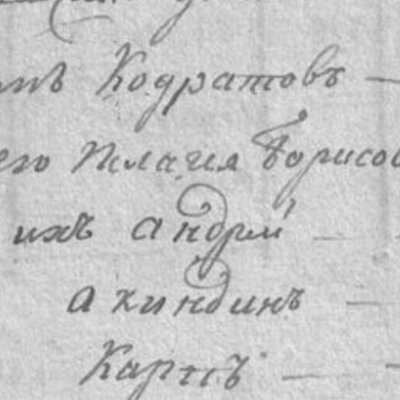 Кодратовъ
его Пелагия Борисов
ихъ андрей
акиндинъ
Карпъ